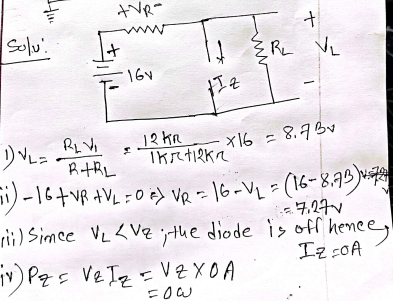 +VR-
Solu:
+
16v
-
IZ
RL
+
VL
-
i) VL = RL Vi / R+RL = 12KΩ / 1KΩ+12KΩ × 16 = 8.73v
ii) -16+VR+VL=0 => VR = 16-VL = (16-8.73)
= 7.27v
iii) Since VL < VZ ; the diode is off hence,
IZ = 0A
iv) PZ = VZ IZ = VZ × 0A
= 0W